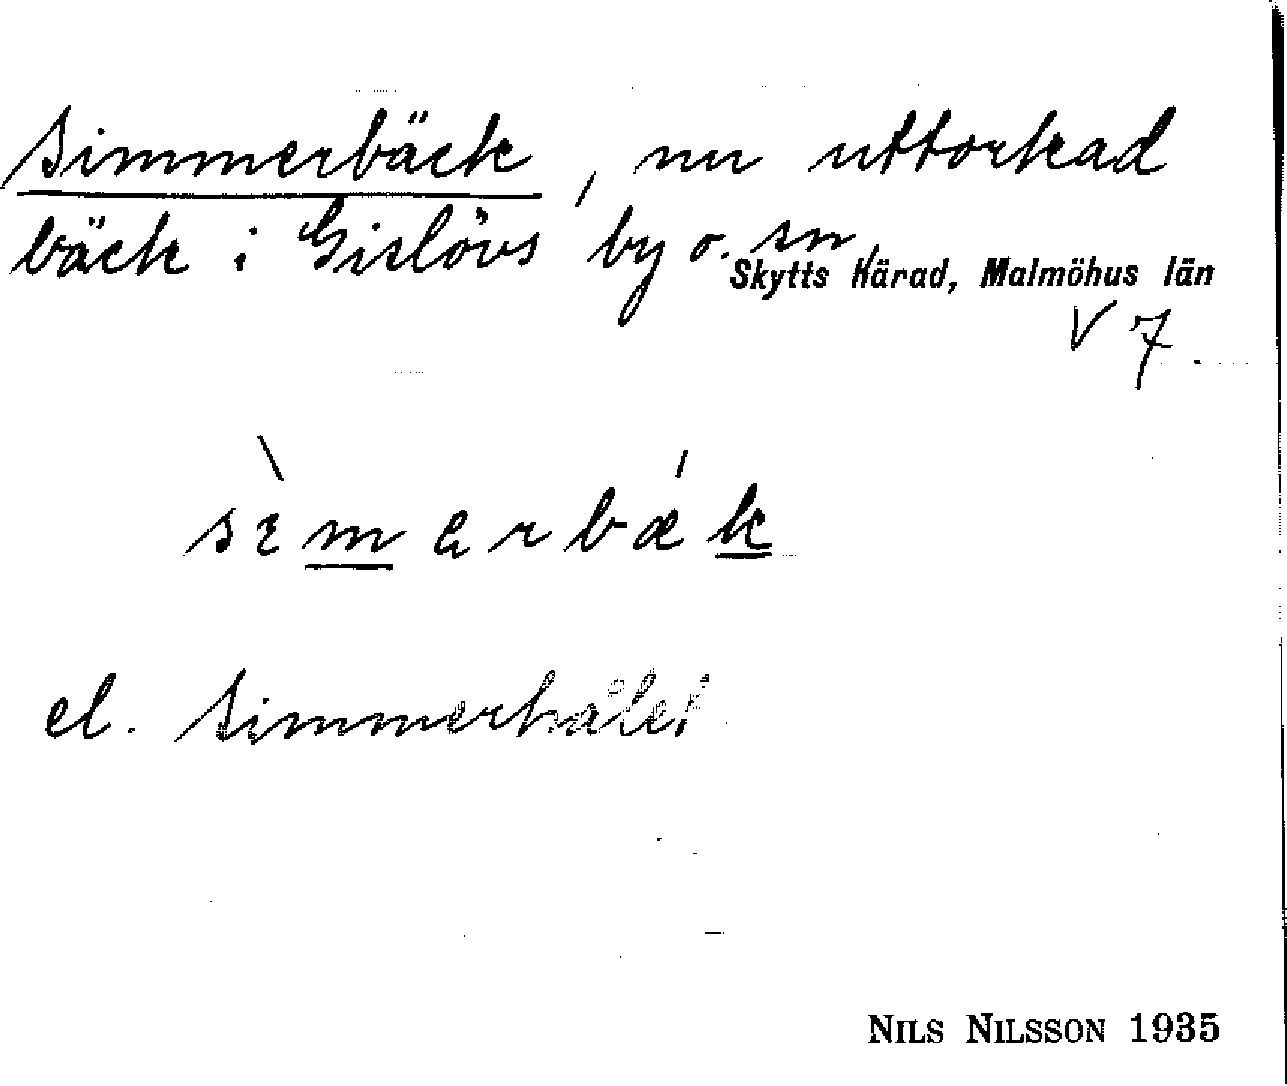 Simmerbäck, nu uttorkad
bäck i Gislövs by o. sn,
Skytts Härad, Malmöhus län
V 7.
sìmərbæ´k
el. Simmerhålet
NILS NILSSON 1935